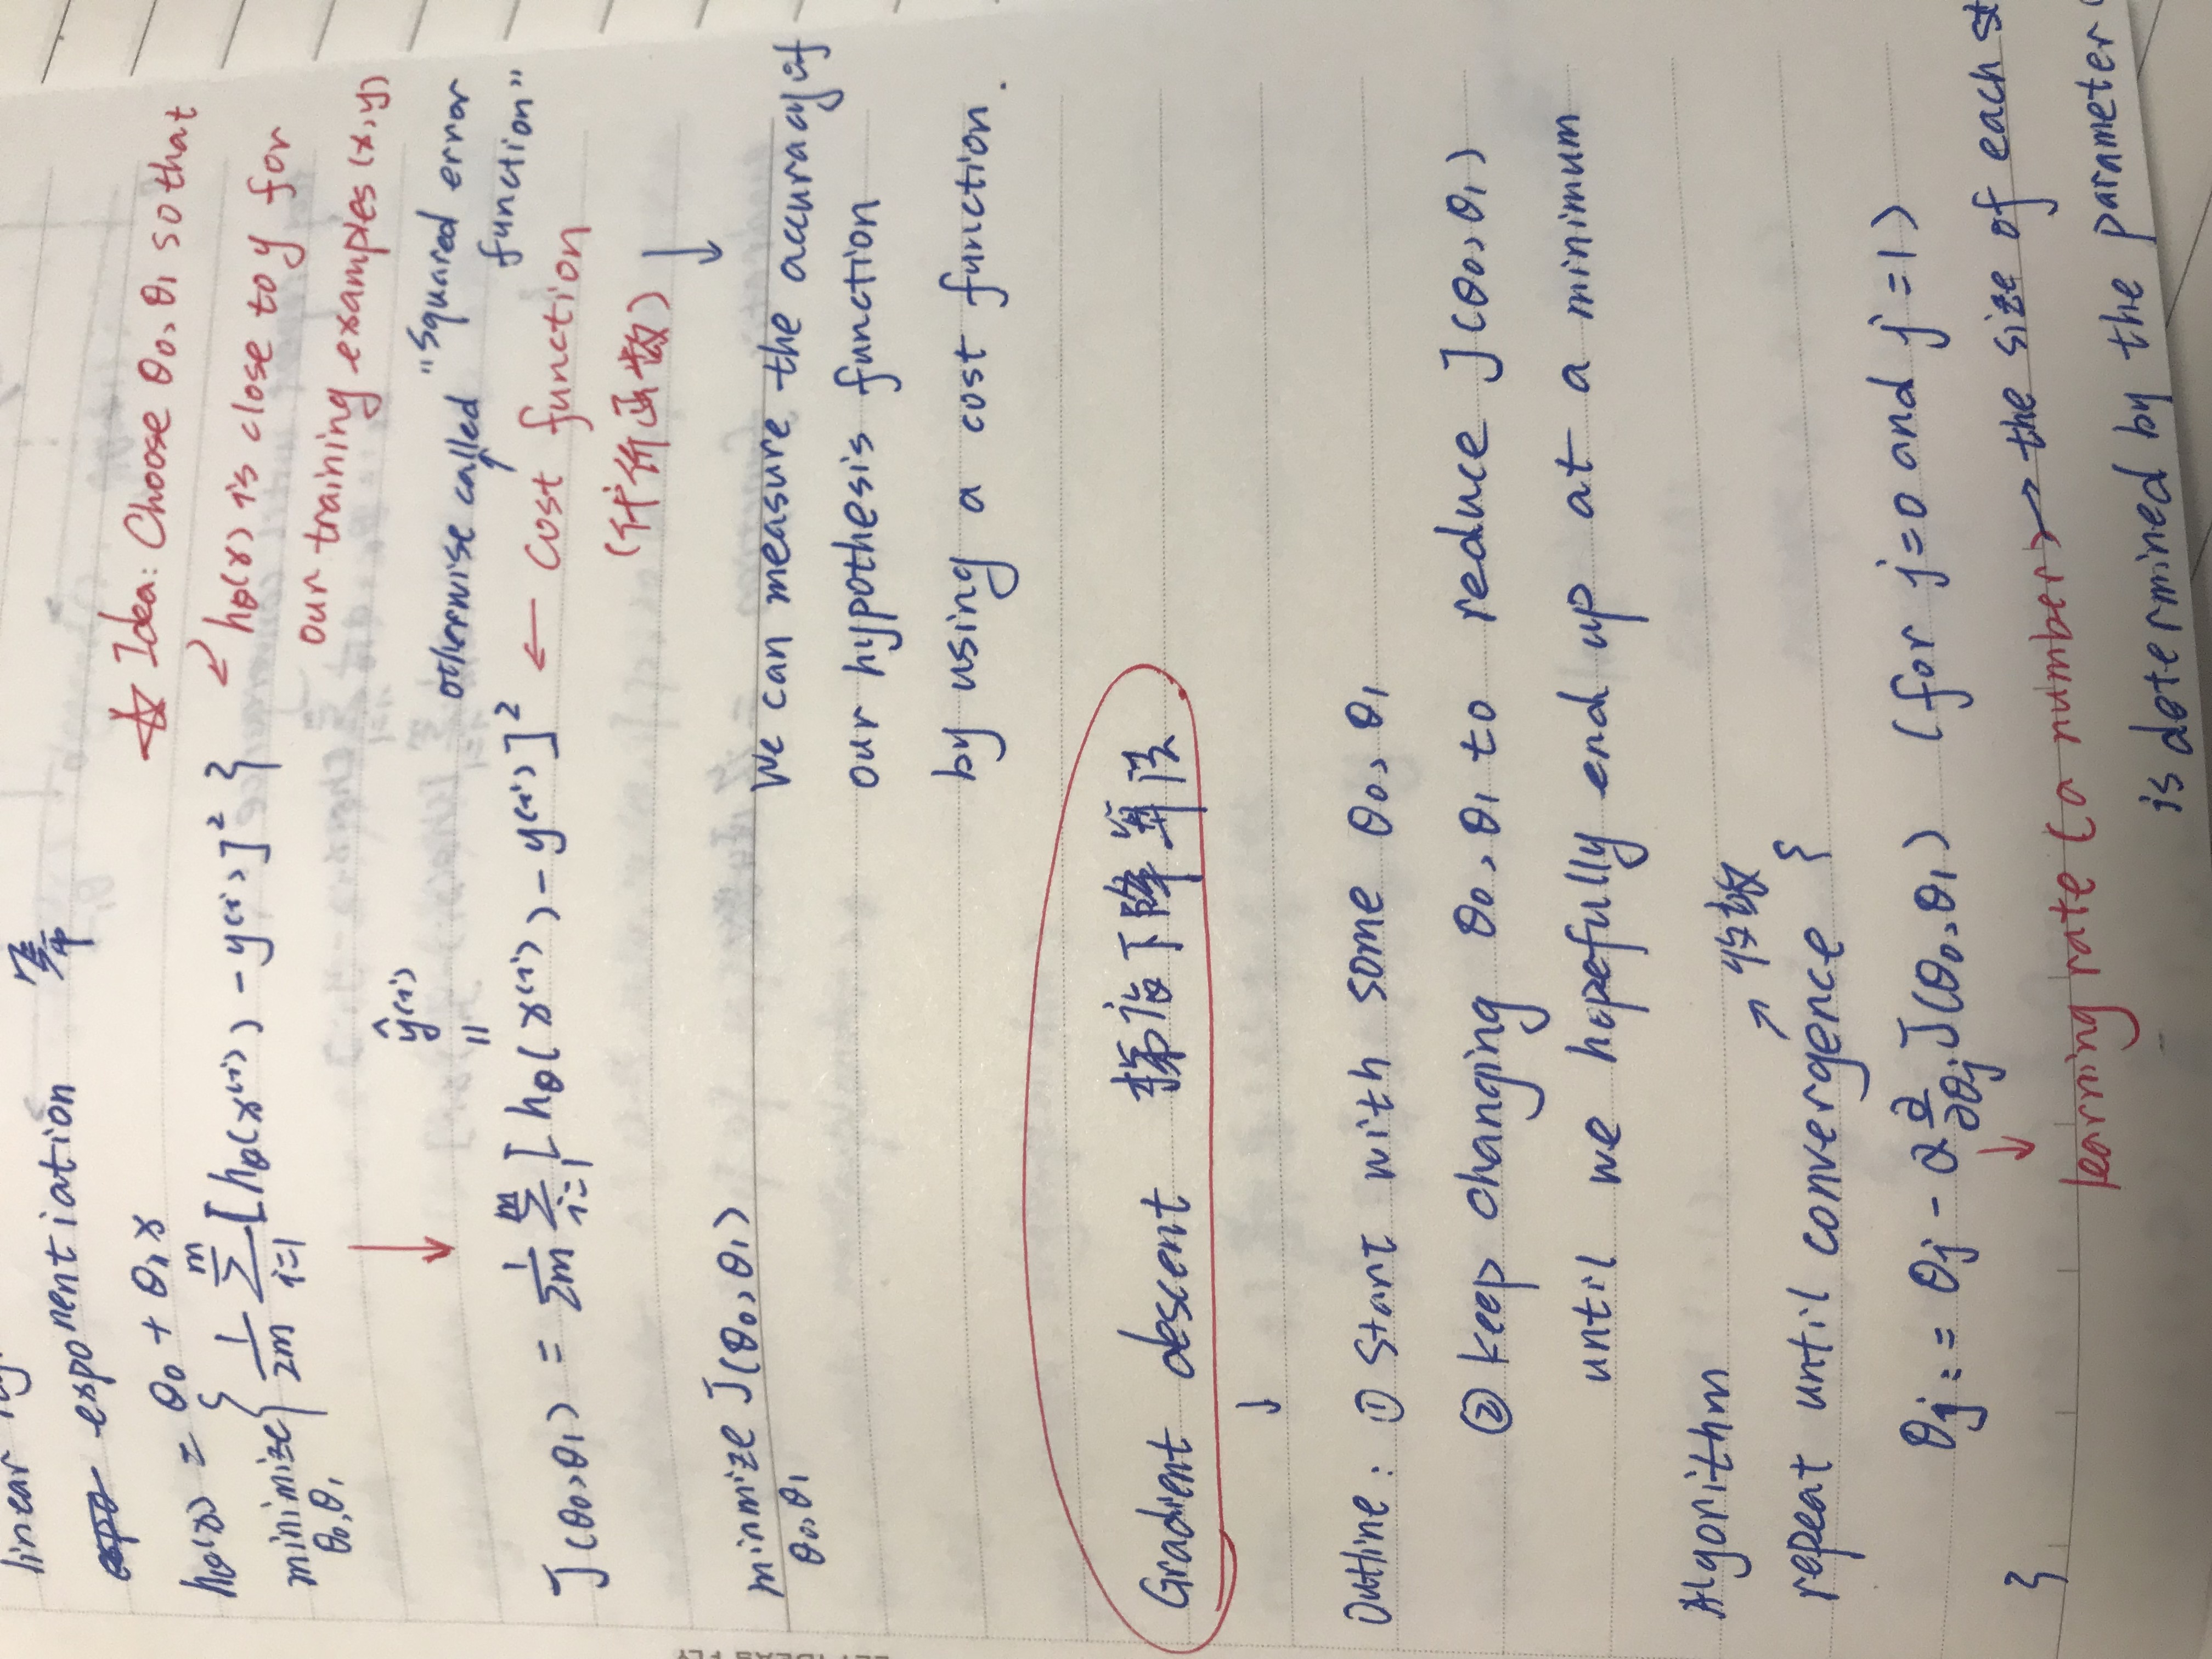 linear
exponentiation 幂
hθ(x) = θ0 + θ1x
minimize { 1/2m Σ_{i=1}^{m} [hθ(x^(i)) - y^(i)]² }
θ0, θ1
☆ Idea: Choose θ0, θ1 so that
hθ(x) is close to y for
our training examples (x, y)
ŷ^(i)
=
J(θ0, θ1) = 1/2m Σ_{i=1}^{m} [hθ(x^(i)) - y^(i)]² ← cost function
(代价函数)
otherwise called "Squared error
function"
minmize J(θ0, θ1)
θ0, θ1
We can measure the accuracy of
our hypothesis function
by using a cost function.
Gradient descent 梯度下降算法
↓
Outline: ① Start with some θ0, θ1
② keep changing θ0, θ1 to reduce J(θ0, θ1)
until we hopefully end up at a minimum
Algorithm
repeat until convergence { ↗ 收敛
θj := θj - α ∂/∂θj J(θ0, θ1) (for j=0 and j=1)
}
learning rate (a number) → the size of each
is determined by the parameter